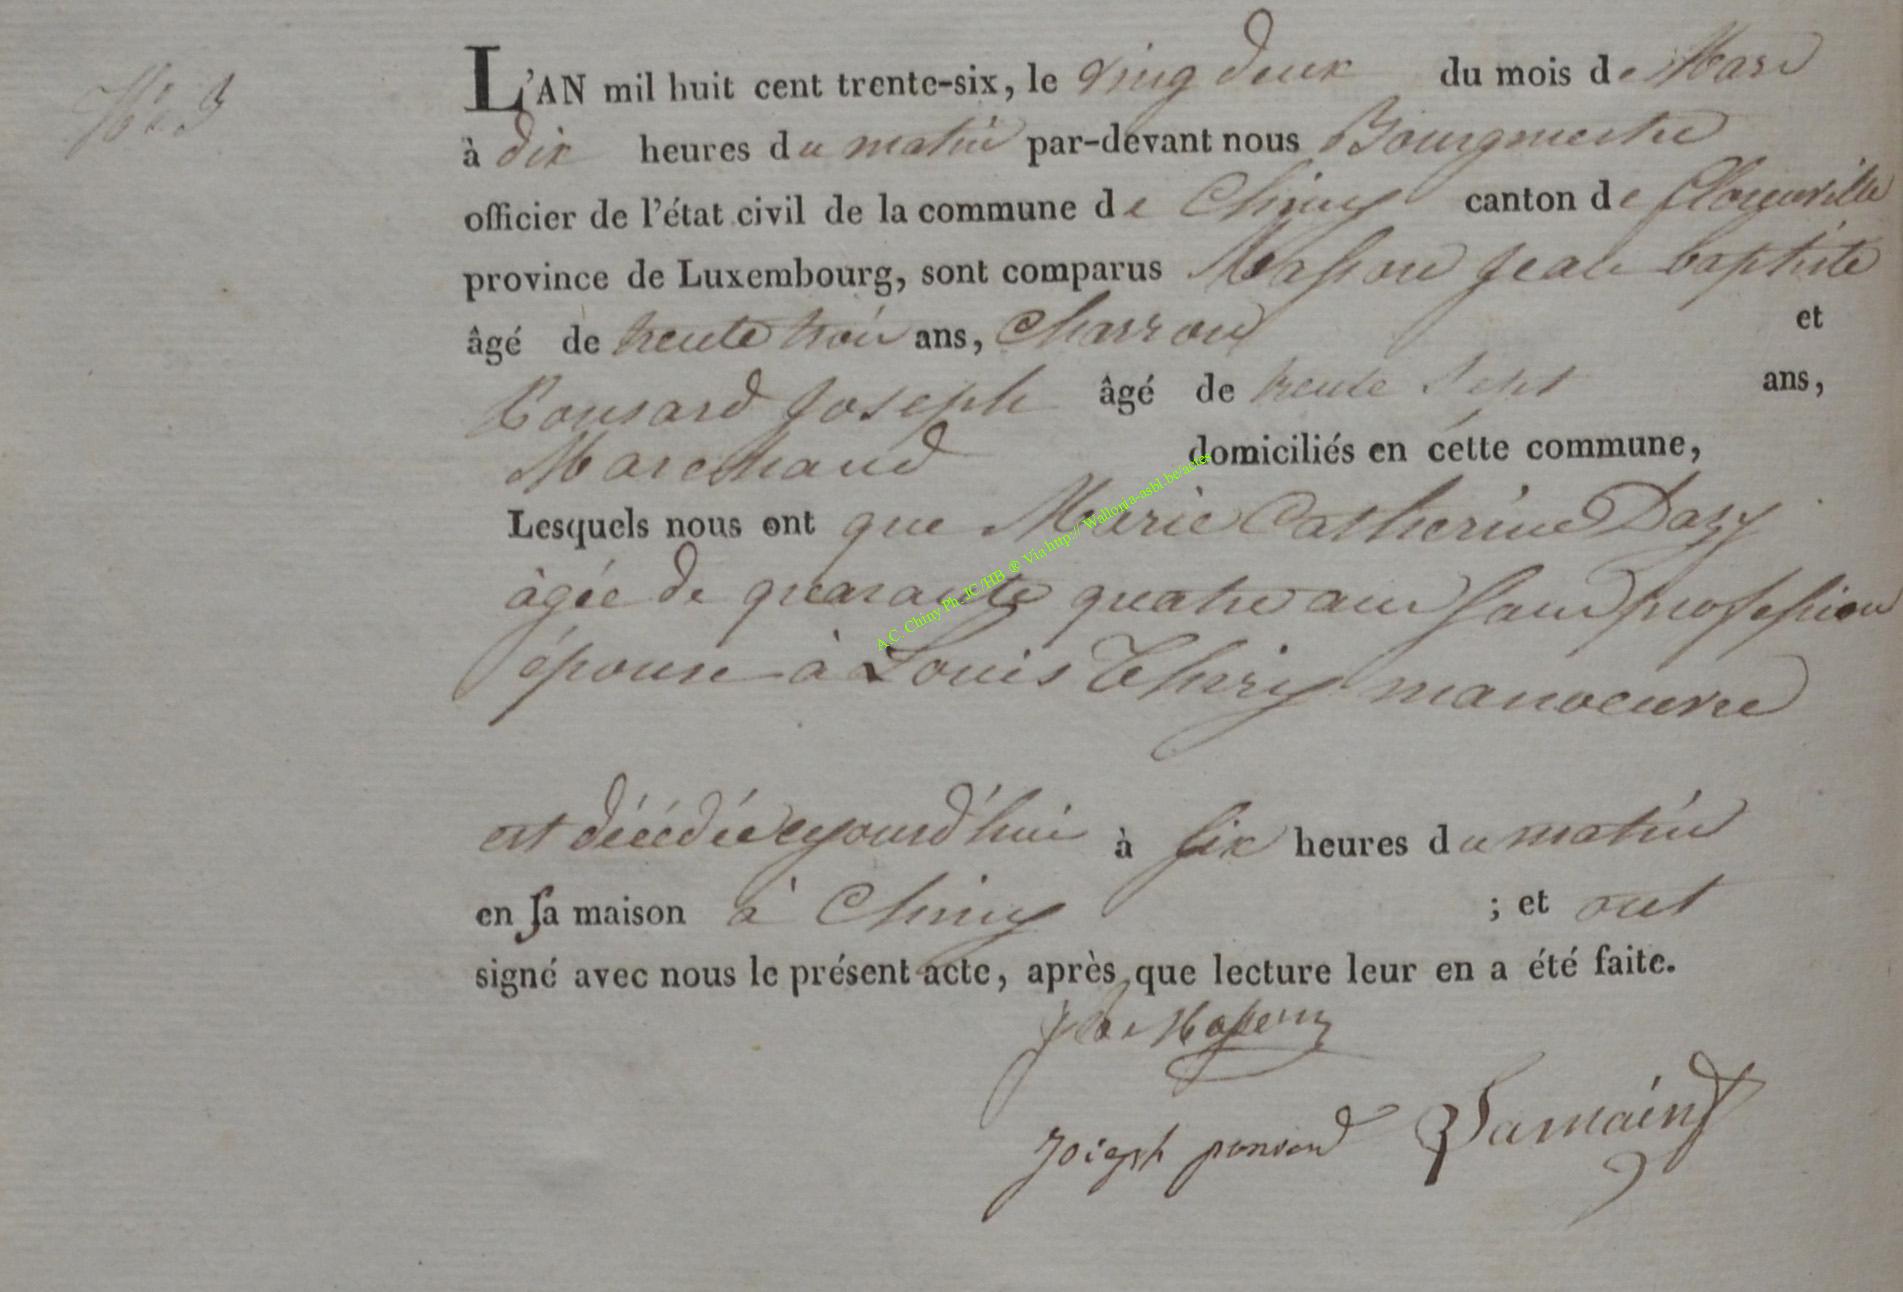 N° 3
L'AN mil huit cent trente-six, le ving deux du mois de Mars
à dix heures du matin par-devant nous Bourgmestre
officier de l'état civil de la commune de Chiny canton de Florenville
province de Luxembourg, sont comparus Masson Jean baptiste
âgé de trente trois ans, Charron et
Ponsard Joseph âgé de trente Sept ans,
Marchand domiciliés en cette commune,
Lesquels nous ont que Marie Catherine Dazy
âgée de quarante quatre ans sans profession
épouse à Louis Thiry manoeuvre
est décédée aujourd'hui à six heures du matin
en sa maison à Chiny ; et ont
signé avec nous le présent acte, après que lecture leur en a été faite.
Masson
Joseph ponsard
A.C. Chiny Ph_JC/HB ® Via http://Wallonia-asbl.be/actes